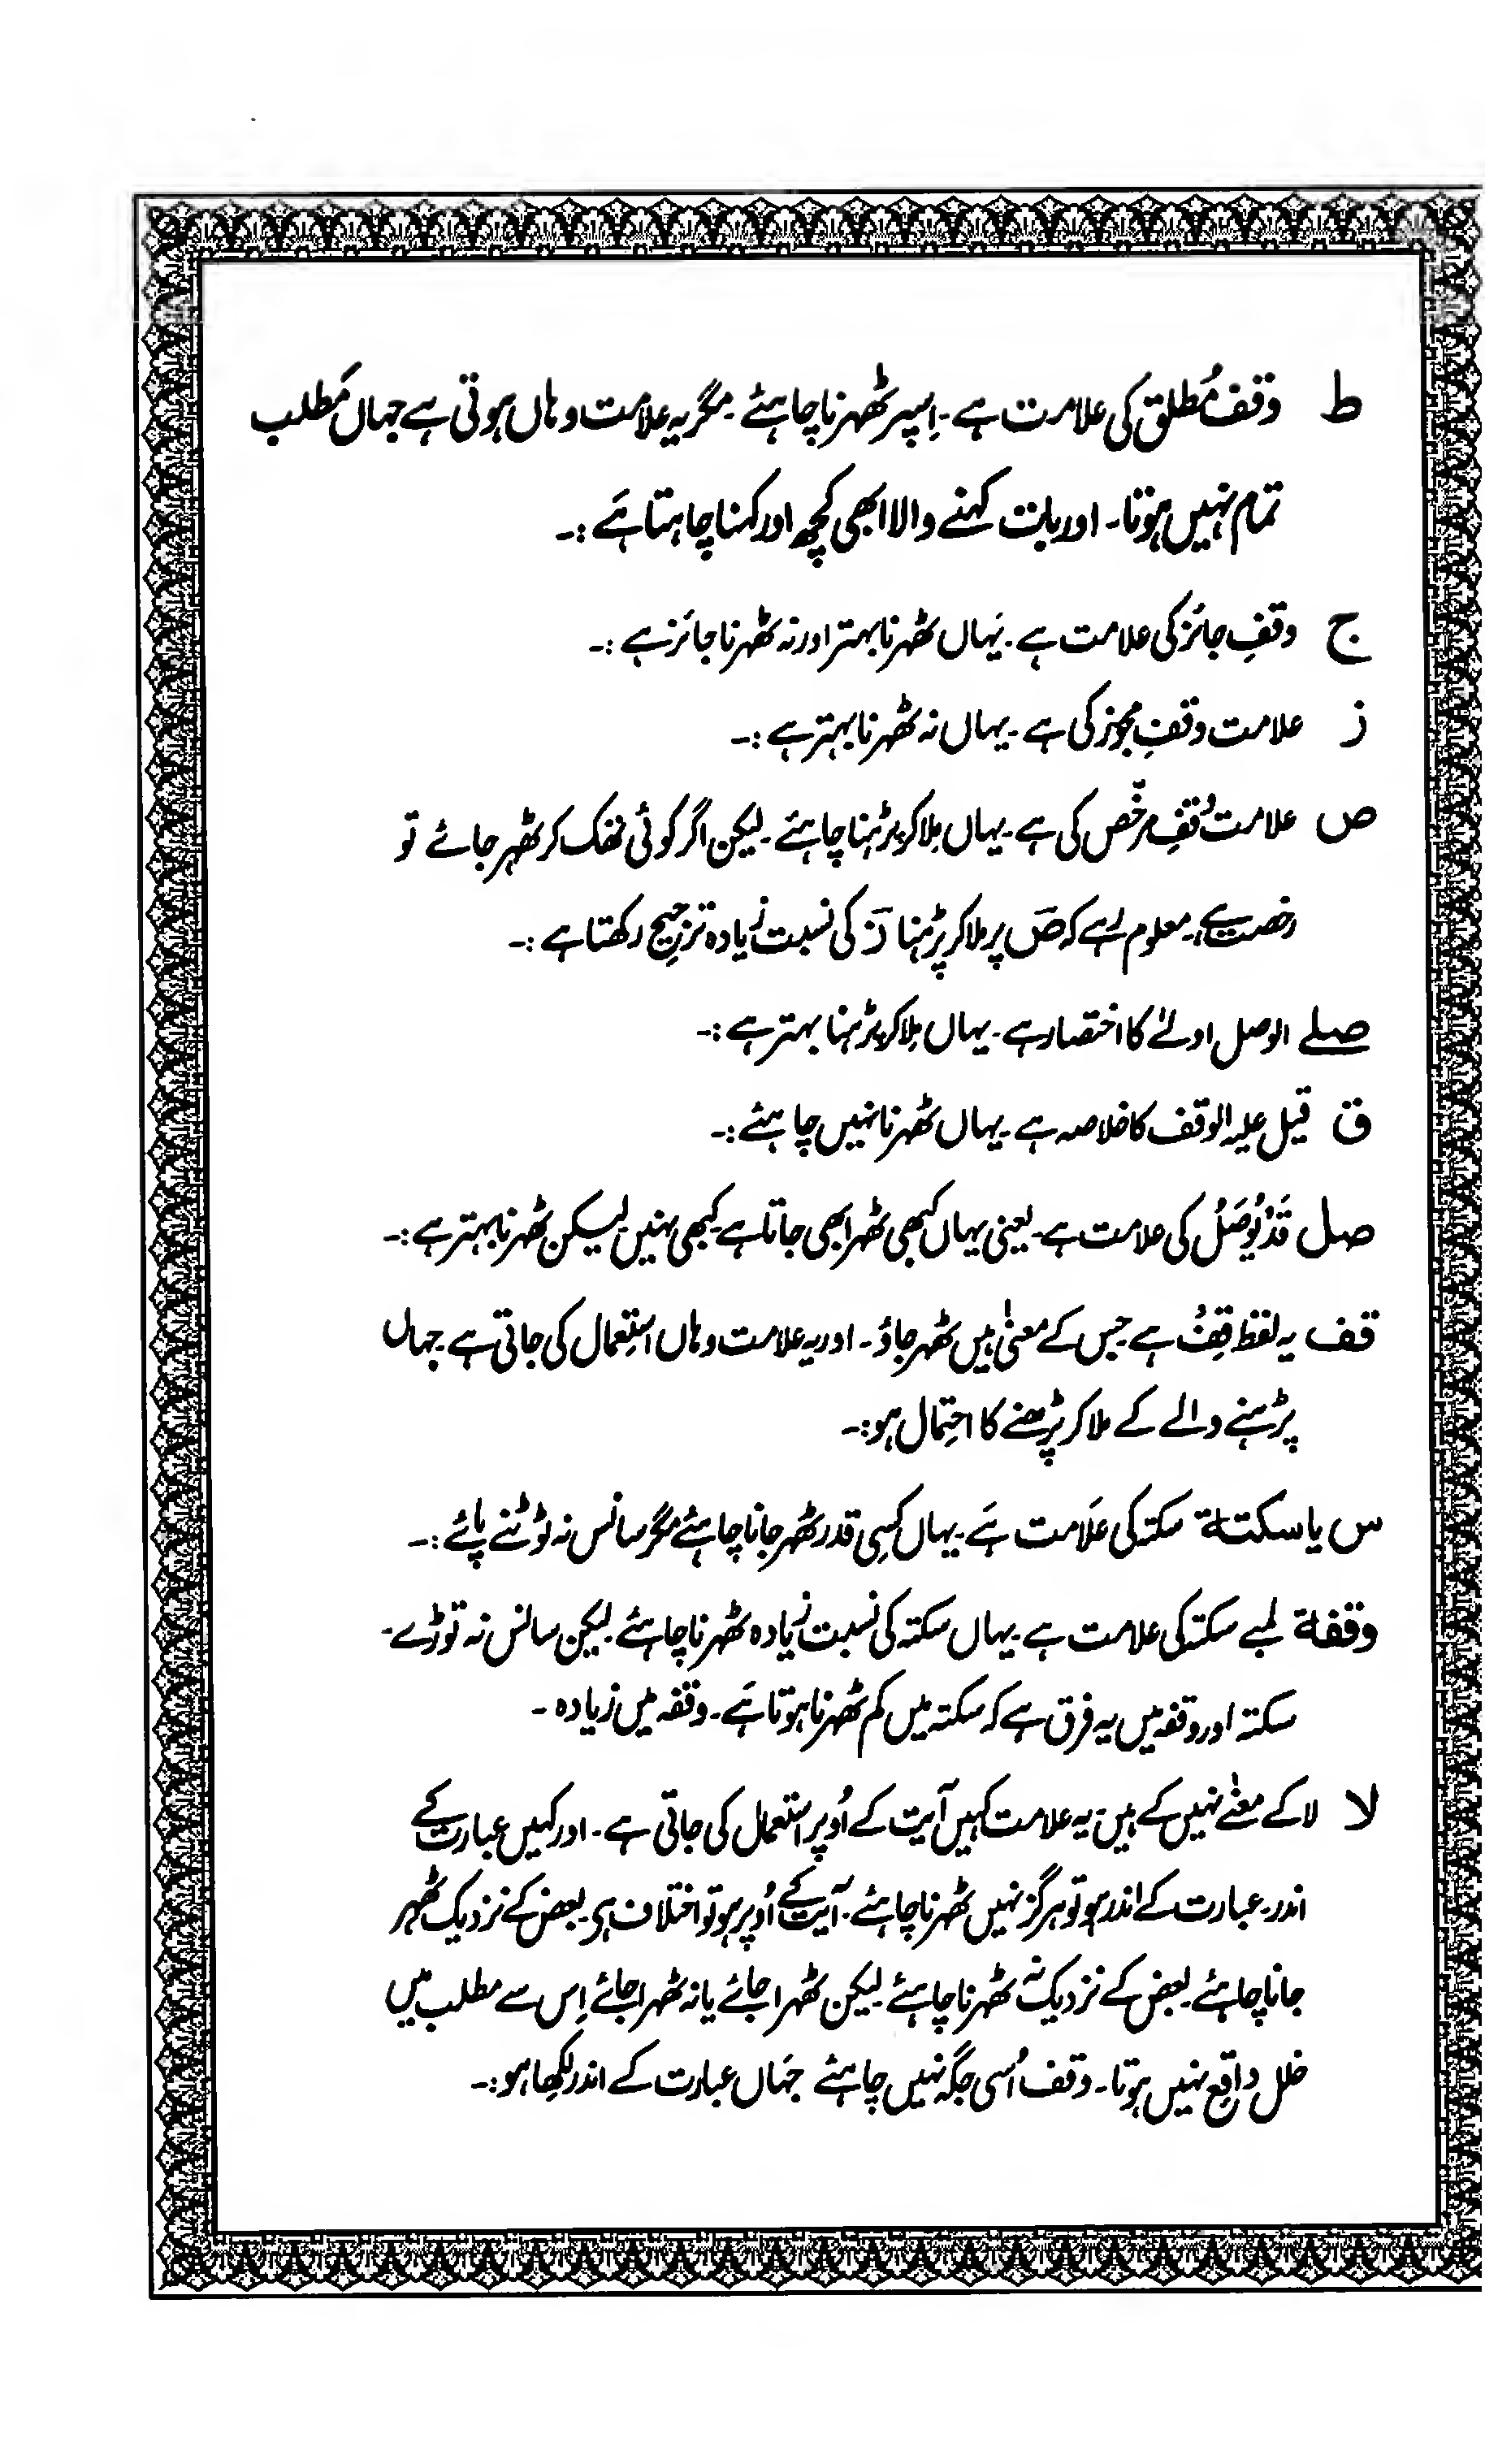 ط وقف مُطلق کی علامت ہے۔ اِسپر ٹھہرنا چاہئے۔ مگر یہ علامت وہاں ہوتی ہے جہاں مَطلب
تمام نہیں ہوتا۔ اور بات کہنے والا ابھی کچھ اور کہنا چاہتا ہَے :۔
ج وقفِ جائز کی علامت ہے۔ یَہاں ٹھہرنا بہتر اور نہ ٹھہرنا جائز ہے :۔
ز علامت وقفِ مجوز کی ہے۔ یہاں نہ ٹھہرنا بہتر ہے :۔
ص علامت وُقفِ مرخّص کی ہے۔ یہاں مِلا کر پڑہنا چاہئے۔ لیکن اگر کوئی تھک کر ٹھہر جائے تو
رخصت ہے۔ معلوم رہے کہ صؔ پر ملا کر پڑہنا زؔ کی نسبت زیادہ ترجیح رکھتا ہے :۔
صلے الوصل اولےٰ کا اختصار ہے۔ یہاں مِلا کر پڑہنا بہتر ہے :۔
ق قیل علیہ الوقف کا خلاصہ ہے۔ یہاں ٹھہرنا نہیں چاہئے :۔
صل قَدْ یُوصَلُ کی علامت ہے۔ یعنی یہاں کبھی ٹھہرا بھی جاتا ہے۔ کبھی نہیں لیکن ٹھہرنا بہتر ہے :۔
قف یہ لفظ قِفْ ہے جس کے معنیٰ ہیں ٹھہر جاؤ۔ اور یہ علامت وہاں استِعمال کی جاتی ہے۔ جہاں
پڑہنے والے کے ملا کر پڑھنے کا احتِمال ہو :۔
س یا سکتة سکتہ کی عَلامت ہَے۔ یہاں کسِی قدر ٹھہر جانا چاہئے مگر سانس نہ ٹوٹنے پائے :۔
وقفة لمبے سکتہ کی علامت ہے۔ یہاں سکتہ کی نسبت زیادہ ٹھہرنا چاہئے۔ لیکن سانس نہ توڑے۔
سکتہ اور وقفہ میں یہ فرق ہے کہ سکتہ میں کم ٹھہرنا ہوتا ہَے۔ وقفہ میں زیادہ ۔
لا لا کے معنےٰ نہیں کے ہیں۔ یہ علامت کہیں آیت کے اُوپر استعمال کی جاتی ہے۔ اور کہیں عبارت کے
اندر۔ عبارت کے اندر ہو تو ہرگز نہیں ٹھہرنا چاہئے۔ آیت کے اُوپر ہو تو اختلاف ہی۔ بعض کے نزدیک ٹھہر
جانا چاہئے۔ بعض کے نزدیک نہ ٹھہرنا چاہئے۔ لیکن ٹھہرا جائے یا نہ ٹھہرا جائے اِس سے مطلب میں
خلل واقع نہیں ہوتا۔ وقف اُسی جگہ نہیں چاہئے جہَاں عبارت کے اندر لِکھا ہو :۔